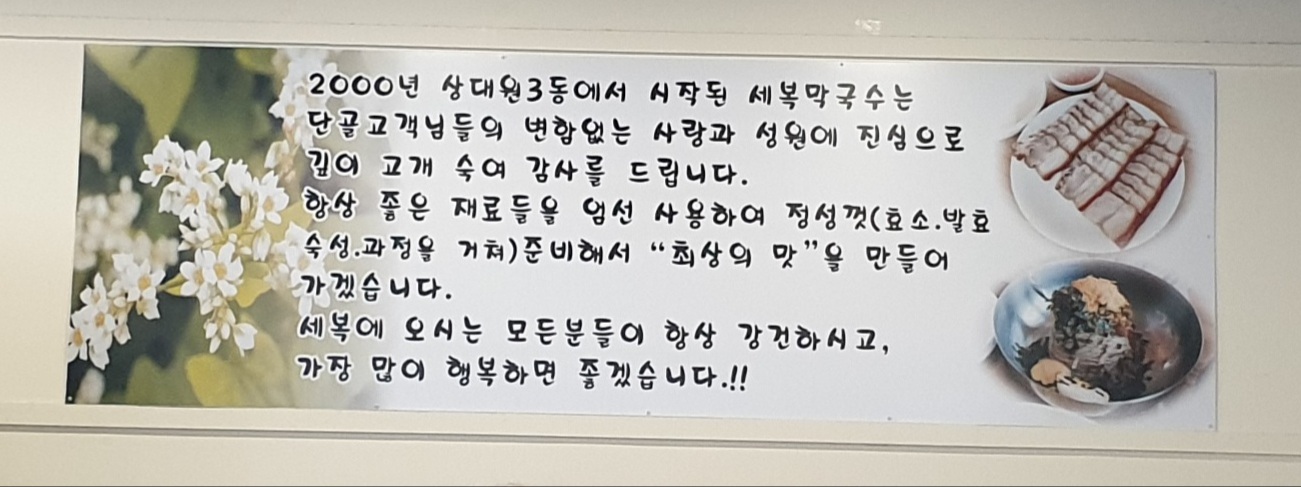 2000년 상대원3동에서 시작된 세복막국수는
단골고객님들의 변함없는 사랑과 성원에 진심으로
깊이 고개 숙여 감사를 드립니다.
항상 좋은 재료들을 엄선 사용하여 정성껏(효소.발효
숙성.과정을 거쳐)준비해서 “최상의 맛”을 만들어
가겠습니다.
세복에 오시는 모든분들이 항상 강건하시고,
가장 많이 행복하면 좋겠습니다.!!